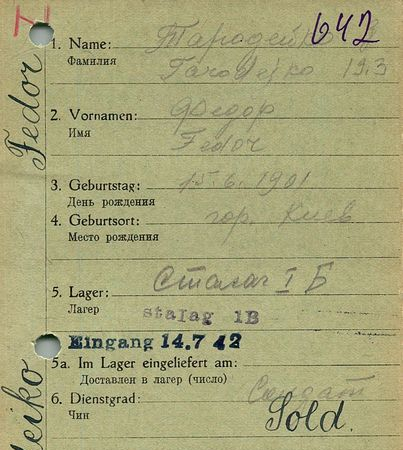 642
1. Name: Тародейко
Фамилия Tarodejko 19.3
2. Vornamen: Федор
Имя Fedor
3. Geburtstag: 15.6.1901
День рождения
4. Geburtsort: гор. Киев
Место рождения
5. Lager: Сталаг I Б
Лагер stalag 1B
Eingang 14.7 42
5a. Im Lager eingeliefert am:
Доставлен в лагер (число)
6. Dienstgrad: Солдат
Чин Sold.
Fedor